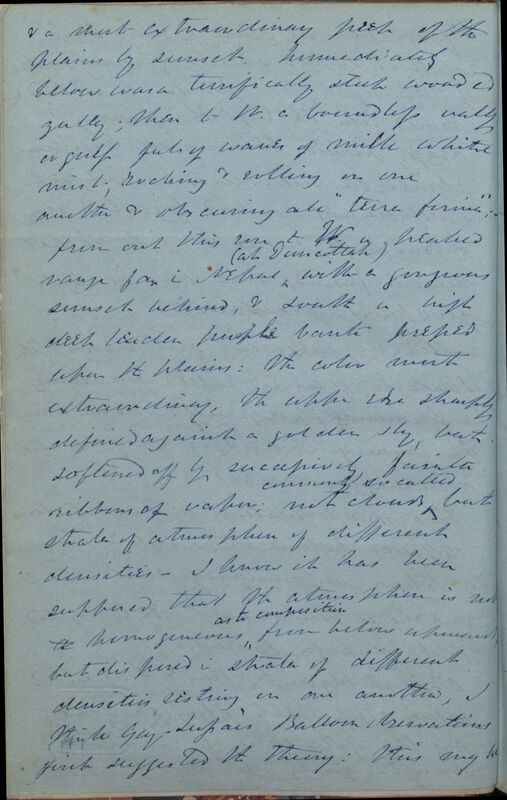 & a most extraordinary peep of the
plains by sunset. Immediately
below was a terrifically steep wooded
gully; then to W. a boundless valley
or gulf full of waves of milk white
mist, rocking & rolling on one
another & obscuring all "terra firma";
from out this rose to W a peaked
range far in Nepal, (ah Duncottah) with a gorgeous
sunset behind, & South a high
deep leaden purple bank
upon the plains: the color most
extraordinary, the upper edge sharply
defined against a golden sky, but
softened off by successively fainter
ribbons of vapor; not clouds commonly so called, but
strata of atmosphere of different
densities – I know it has been
supposed that the atmosphere is not
homogeneous as to composition, from below upwards,
but disposed in strata of different
densities, resting on one another, I
think Gay-Lussac's Balloon observations
first suggested the theory: this may be